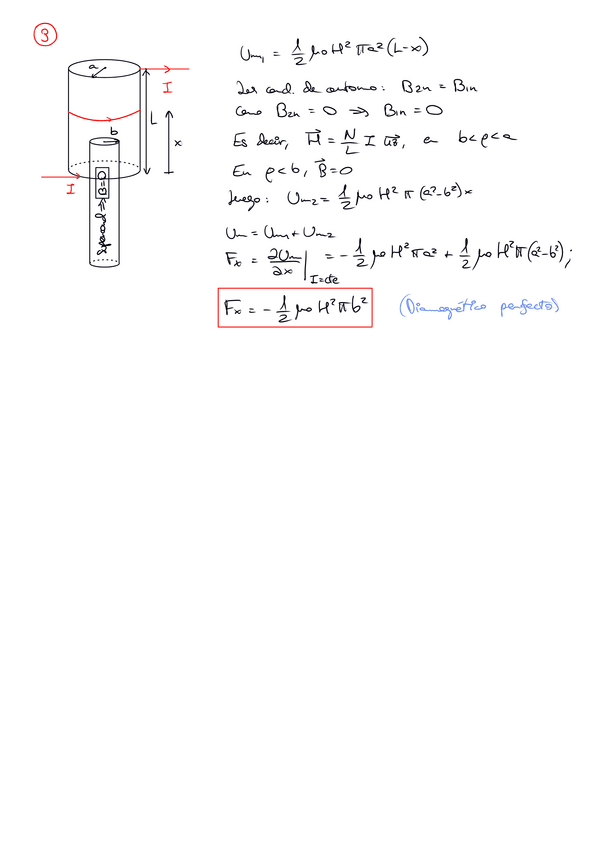 3
a
I
L
b
x
I
B=0
Um₁ = 1/2 μo H² πa² (L-x)
2as cond. de contorno: B2n = B1n
Como B2n = 0 ⇒ B1n = 0
Es decir, H⃗ = N/L I u⃗, en b<ρ<a
En ρ<b, B⃗=0
Luego: Um2 = 1/2 μo H² π (a²-b²)x
Um = Um1 + Um2
Fx = ∂Um/∂x |I=cte = - 1/2 μo H² πa² + 1/2 μo H² π (a²-b²);
Fx = - 1/2 μo H² πb² (Diamagnético perfecto)